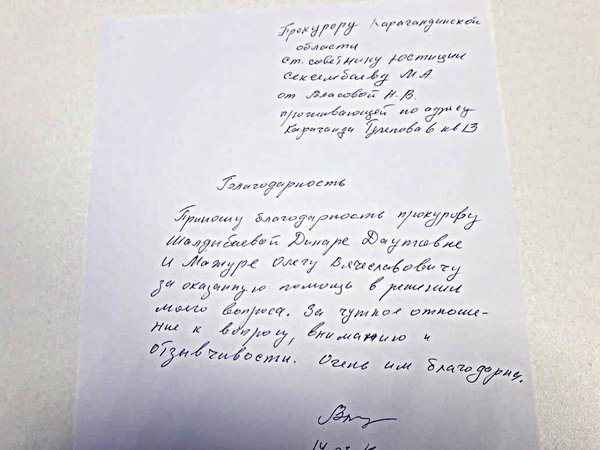 Прокурору Карагандинской
области
ст. советнику юстиции
Сексембаеву М.А
от Власовой Н.В.
проживающей по адресу
Караганда 6 кв 13
Благодарность
Приношу благодарность прокурору
Шалдыбаевой Динаре Даутовне
и Мажуре Олегу Вячеславовичу
за оказанную помощь в решении
моего вопроса. За чуткое отноше-
ние к вопросу, вниманию и
отзывчивости. Очень им благодарна.